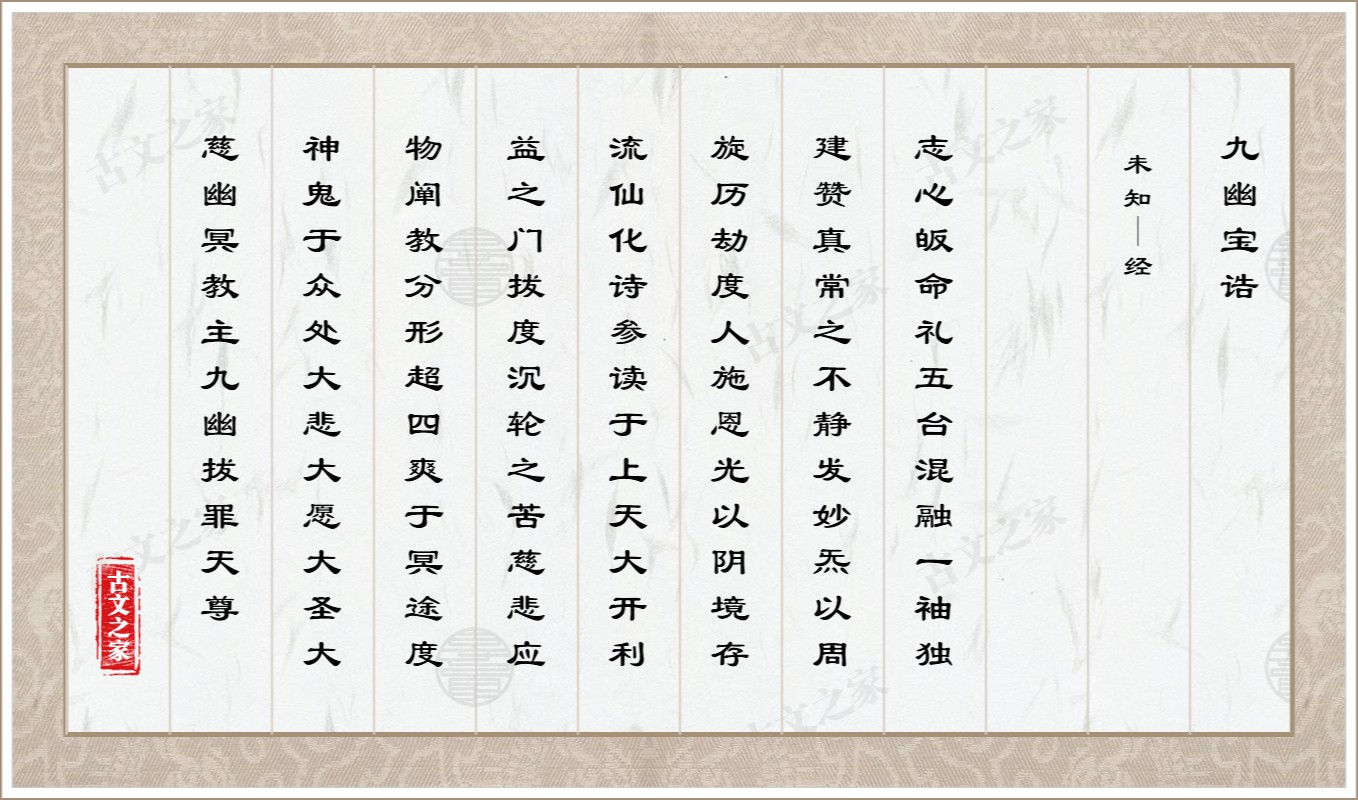 九幽宝诰
未知—经
志心皈命礼五台混融一袖独
建赞真常之不静发妙炁以周
旋历劫度人施恩光以阴境存
流仙化诗参读于上天大开利
益之门拔度沉轮之苦慈悲应
物阐教分形超四爽于冥途度
神鬼于众处大悲大愿大圣大
慈幽冥教主九幽拔罪天尊
古文之家